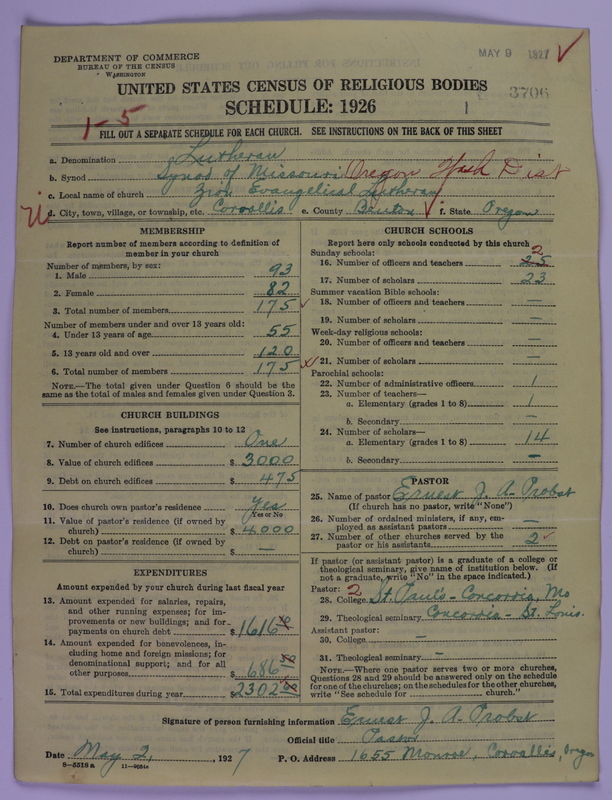 DEPARTMENT OF COMMERCE
BUREAU OF THE CENSUS
WASHINGTON
MAY 9 1927
UNITED STATES CENSUS OF RELIGIOUS BODIES
SCHEDULE: 1926
3706
1-5
FILL OUT A SEPARATE SCHEDULE FOR EACH CHURCH. SEE INSTRUCTIONS ON THE BACK OF THIS SHEET
a. Denomination Lutheran
b. Synod Synod of Missouri Oregon Wash Dist
c. Local name of church Zion Evangelical Lutheran
d. City, town, village, or township, etc. Corvallis e. County Benton f. State Oregon
MEMBERSHIP
Report number of members according to definition of
member in your church
Number of members, by sex:
1. Male 93
2. Female 82
3. Total number of members 175
Number of members under and over 13 years old:
4. Under 13 years of age 55
5. 13 years old and over 120
6. Total number of members 175
NOTE.—The total given under Question 6 should be the
same as the total of males and females given under Question 3.
CHURCH BUILDINGS
See instructions, paragraphs 10 to 12
7. Number of church edifices One
8. Value of church edifices $ 3000
9. Debt on church edifices $ 475
10. Does church own pastor's residence Yes
Yes or No
11. Value of pastor's residence (if owned by
church) $ 4000
12. Debt on pastor's residence (if owned by
church) $ —
EXPENDITURES
Amount expended by church during last fiscal year
13. Amount expended for salaries, repairs,
and other running expenses; for im-
provements or new buildings; and for
payments on church debt $ 1616
14. Amount expended for benevolences, in-
cluding home and foreign missions; for
denominational support; and for all
other purposes $ 686
15. Total expenditures during year $ 2302
CHURCH SCHOOLS
Report here only schools conducted by this church
Sunday schools: 2
16. Number of officers and teachers 25
17. Number of scholars 23
Summer vacation Bible schools:
18. Number of officers and teachers —
19. Number of scholars —
Week-day religious schools:
20. Number of officers and teachers —
21. Number of scholars —
Parochial schools:
22. Number of administrative officers 1
23. Number of teachers—
a. Elementary (grades 1 to 8) 1
b. Secondary —
24. Number of scholars—
a. Elementary (grades 1 to 8) 14
b. Secondary —
PASTOR
25. Name of pastor Ernest J. A. Probst
(If church has no pastor, write "None")
26. Number of ordained ministers, if any, em-
ployed as assistant pastors —
27. Number of other churches served by the
pastor or his assistants 2
If pastor (or assistant pastor) is a graduate of a college or
theological seminary, give name of institution below. (If
not a graduate, write "No" in the space indicated.)
Pastor: 2
28. College St. Paul's - Concordia, Mo
29. Theological seminary Concordia - St. Louis.
Assistant pastor:
30. College —
31. Theological seminary —
NOTE.—Where one pastor serves two or more churches,
Questions 28 and 29 should be answered only on the schedule
for one of the churches; on the schedules for the other churches,
write "See schedule for church."
Signature of person furnishing information Ernest J. A. Probst
Official title Pastor
Date May 2, 1927 P. O. Address 1655 Monroe, Corvallis, Oregon
8-5518 a